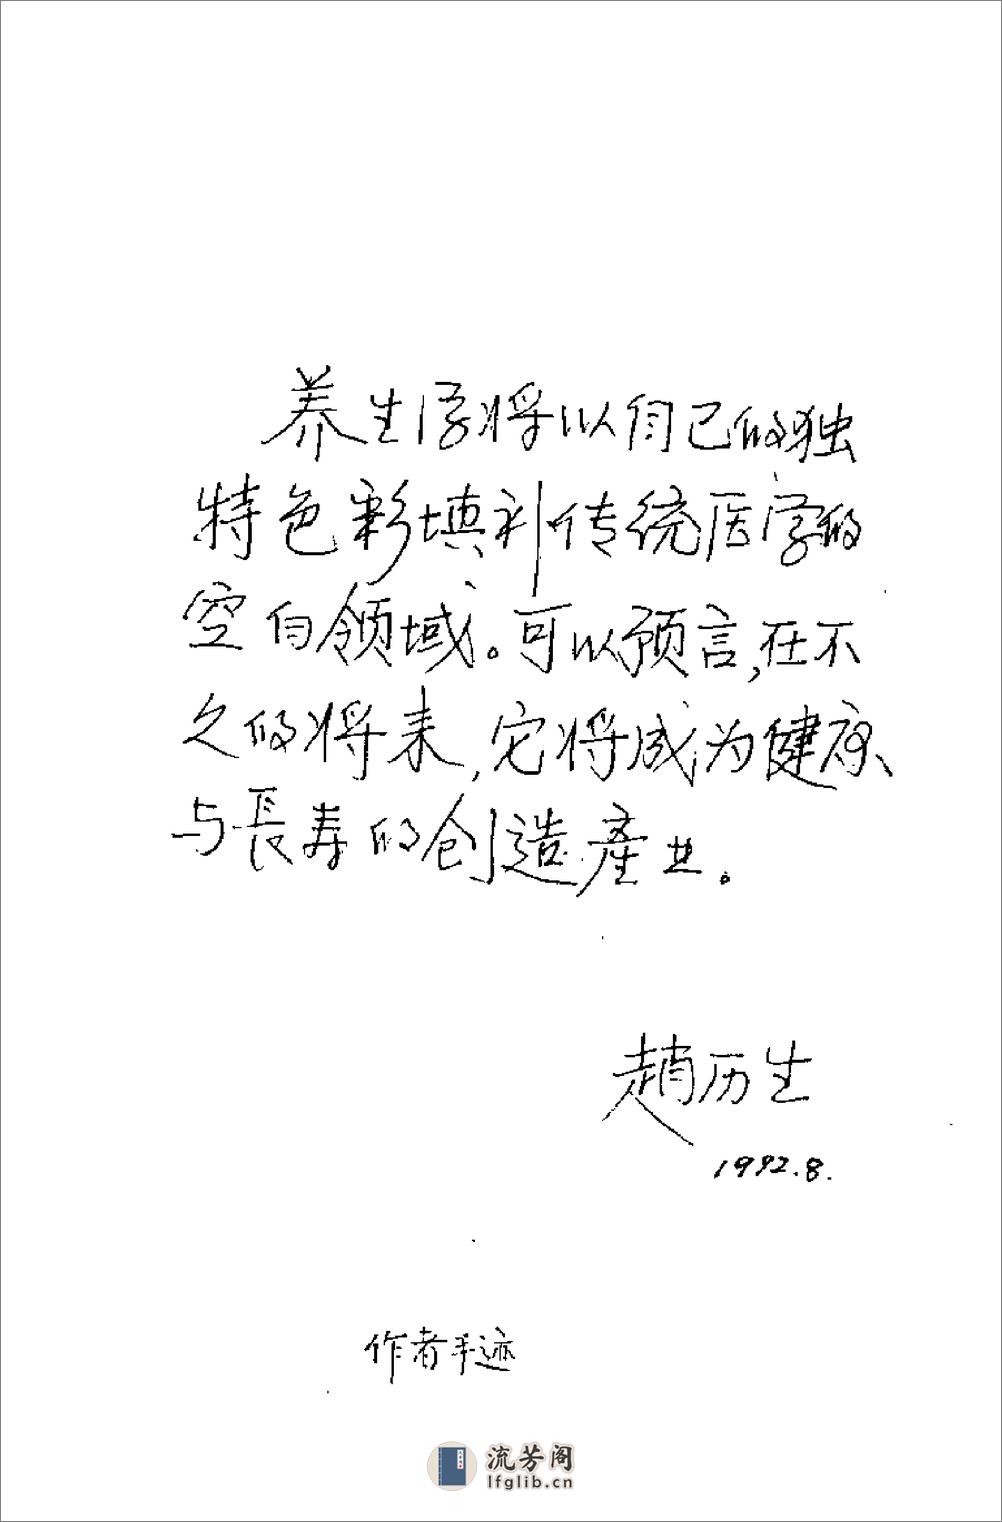 养生学将以自己的独
特色彩填补传统医学的
空白领域。可以预言,在不
久的将来,它将成为健康
与長寿的创造產业。
趙历生
1992.8.
作者手迹
流芳阁
lfglib.cn